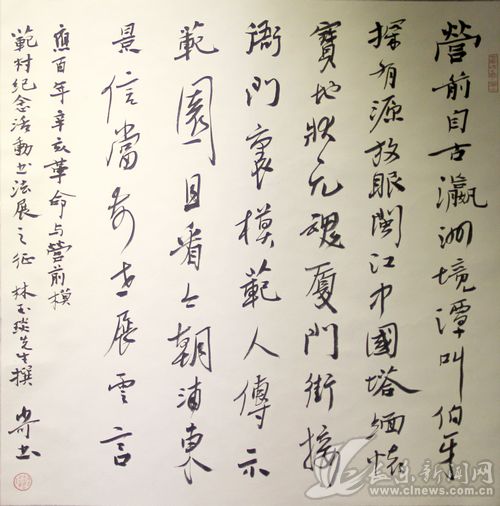 營前自古瀛洲境潭叫伯牙
探有源放眼閩江中國塔緬懷
寶地狀元魂廈門街接
衙門裏模範人傳示
範園一目看今朝浦東
景信當展雲言
應百年辛亥革命与營前模
範村纪念活動书法展之征 林玉先生撰 书
长乐新闻网
www.clnews.com.cn